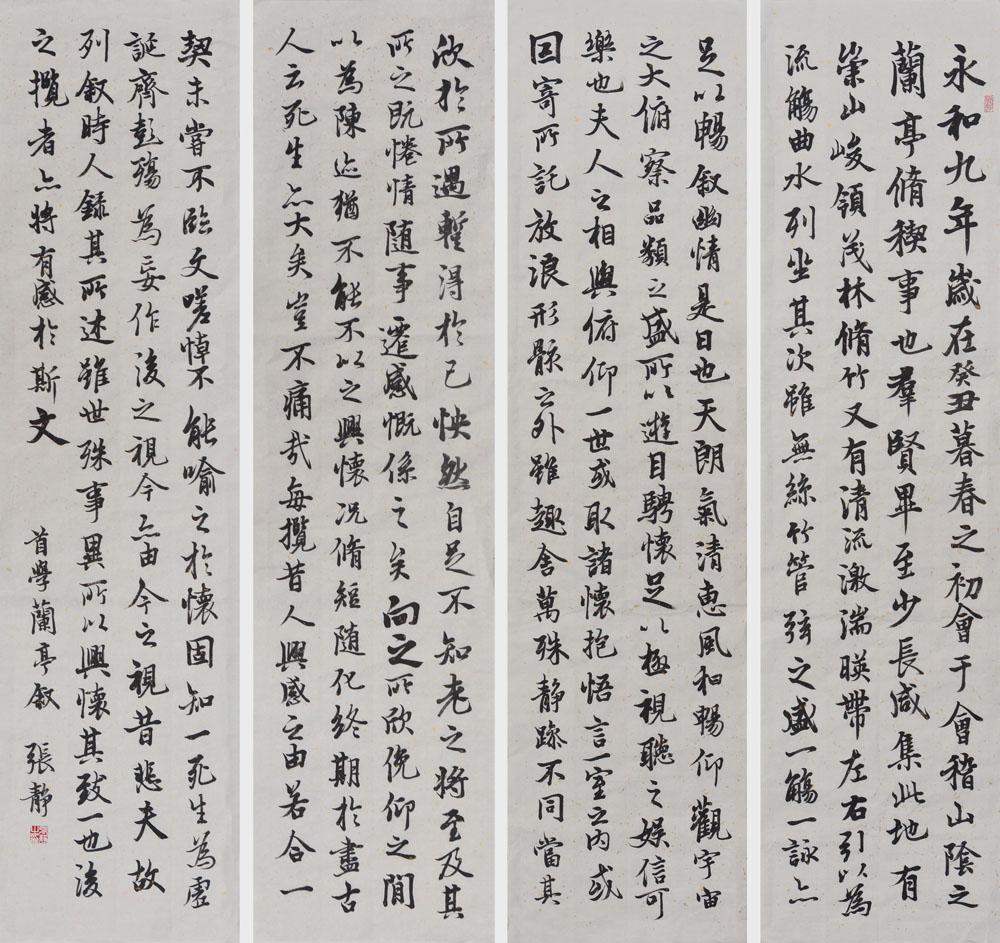 永和九年歲在癸丑暮春之初會于會稽山陰之
蘭亭脩稧事也羣賢畢至少長咸集此地有
崇山峻領茂林脩竹又有清流激湍暎帶左右引以為
流觴曲水列坐其次雖無絲竹管弦之盛一觴一詠亦
足以暢叙幽情是日也天朗氣清惠風和暢仰觀宇宙
之大俯察品類之盛所以遊目騁懷足以極視聽之娛信可
樂也夫人之相與俯仰一世或取諸懷抱悟言一室之內或
因寄所託放浪形骸之外雖趣舍萬殊静躁不同當其
欣於所遇暫得於己怏然自足不知老之將至及其
所之既惓情随事遷感慨係之矣向之所欣俛仰之閒
以為陳迹猶不能不以之興懷況脩短随化終期於盡古
人云死生亦大矣豈不痛哉每攬昔人興感之由若合一
契未嘗不臨文嗟悼不能喻之於懷固知一死生為虛
誕齊彭殤為妄作後之視今亦由今之視昔悲夫故
列叙時人録其所述雖世殊事異所以興懷其致一也後
之攬者亦將有感於斯文
首學蘭亭叙 張静